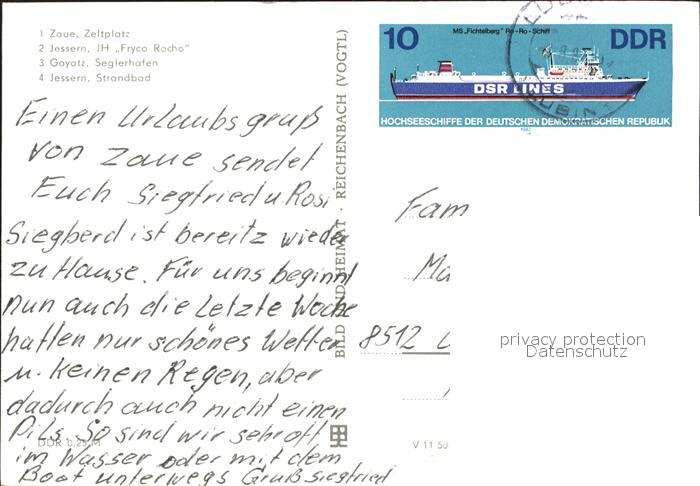 1 Zaue, Zeltplatz
2 Jessern, JH „Fryco Rocho"
3 Goyatz, Seglerhafen
4 Jessern, Strandbad
Einen Urlaubsgruß
von Zaue sendet
Euch Siegfried u. Rosi
Siegberd ist bereitz wieder
zu Hause. Für uns beginnt
nun auch die Letzte Woche
hatten nur schönes Wetter
u. keinen Regen, aber
dadurch auch nicht einen
Pilz. So sind wir sehr oft
im Wasser oder mit dem
Boot unterwegs Gruß Siegfried
DDR 0,25 M
BILD UND HEIMAT · REICHENBACH (VOGTL)
V 11 50
10
MS „Fichtelberg" Ro-Ro-Schiff
DDR
DSR LINES
HOCHSEESCHIFFE DER DEUTSCHEN DEMOKRATISCHEN REPUBLIK
1982
Fam
8512
privacy protection
Datenschutz